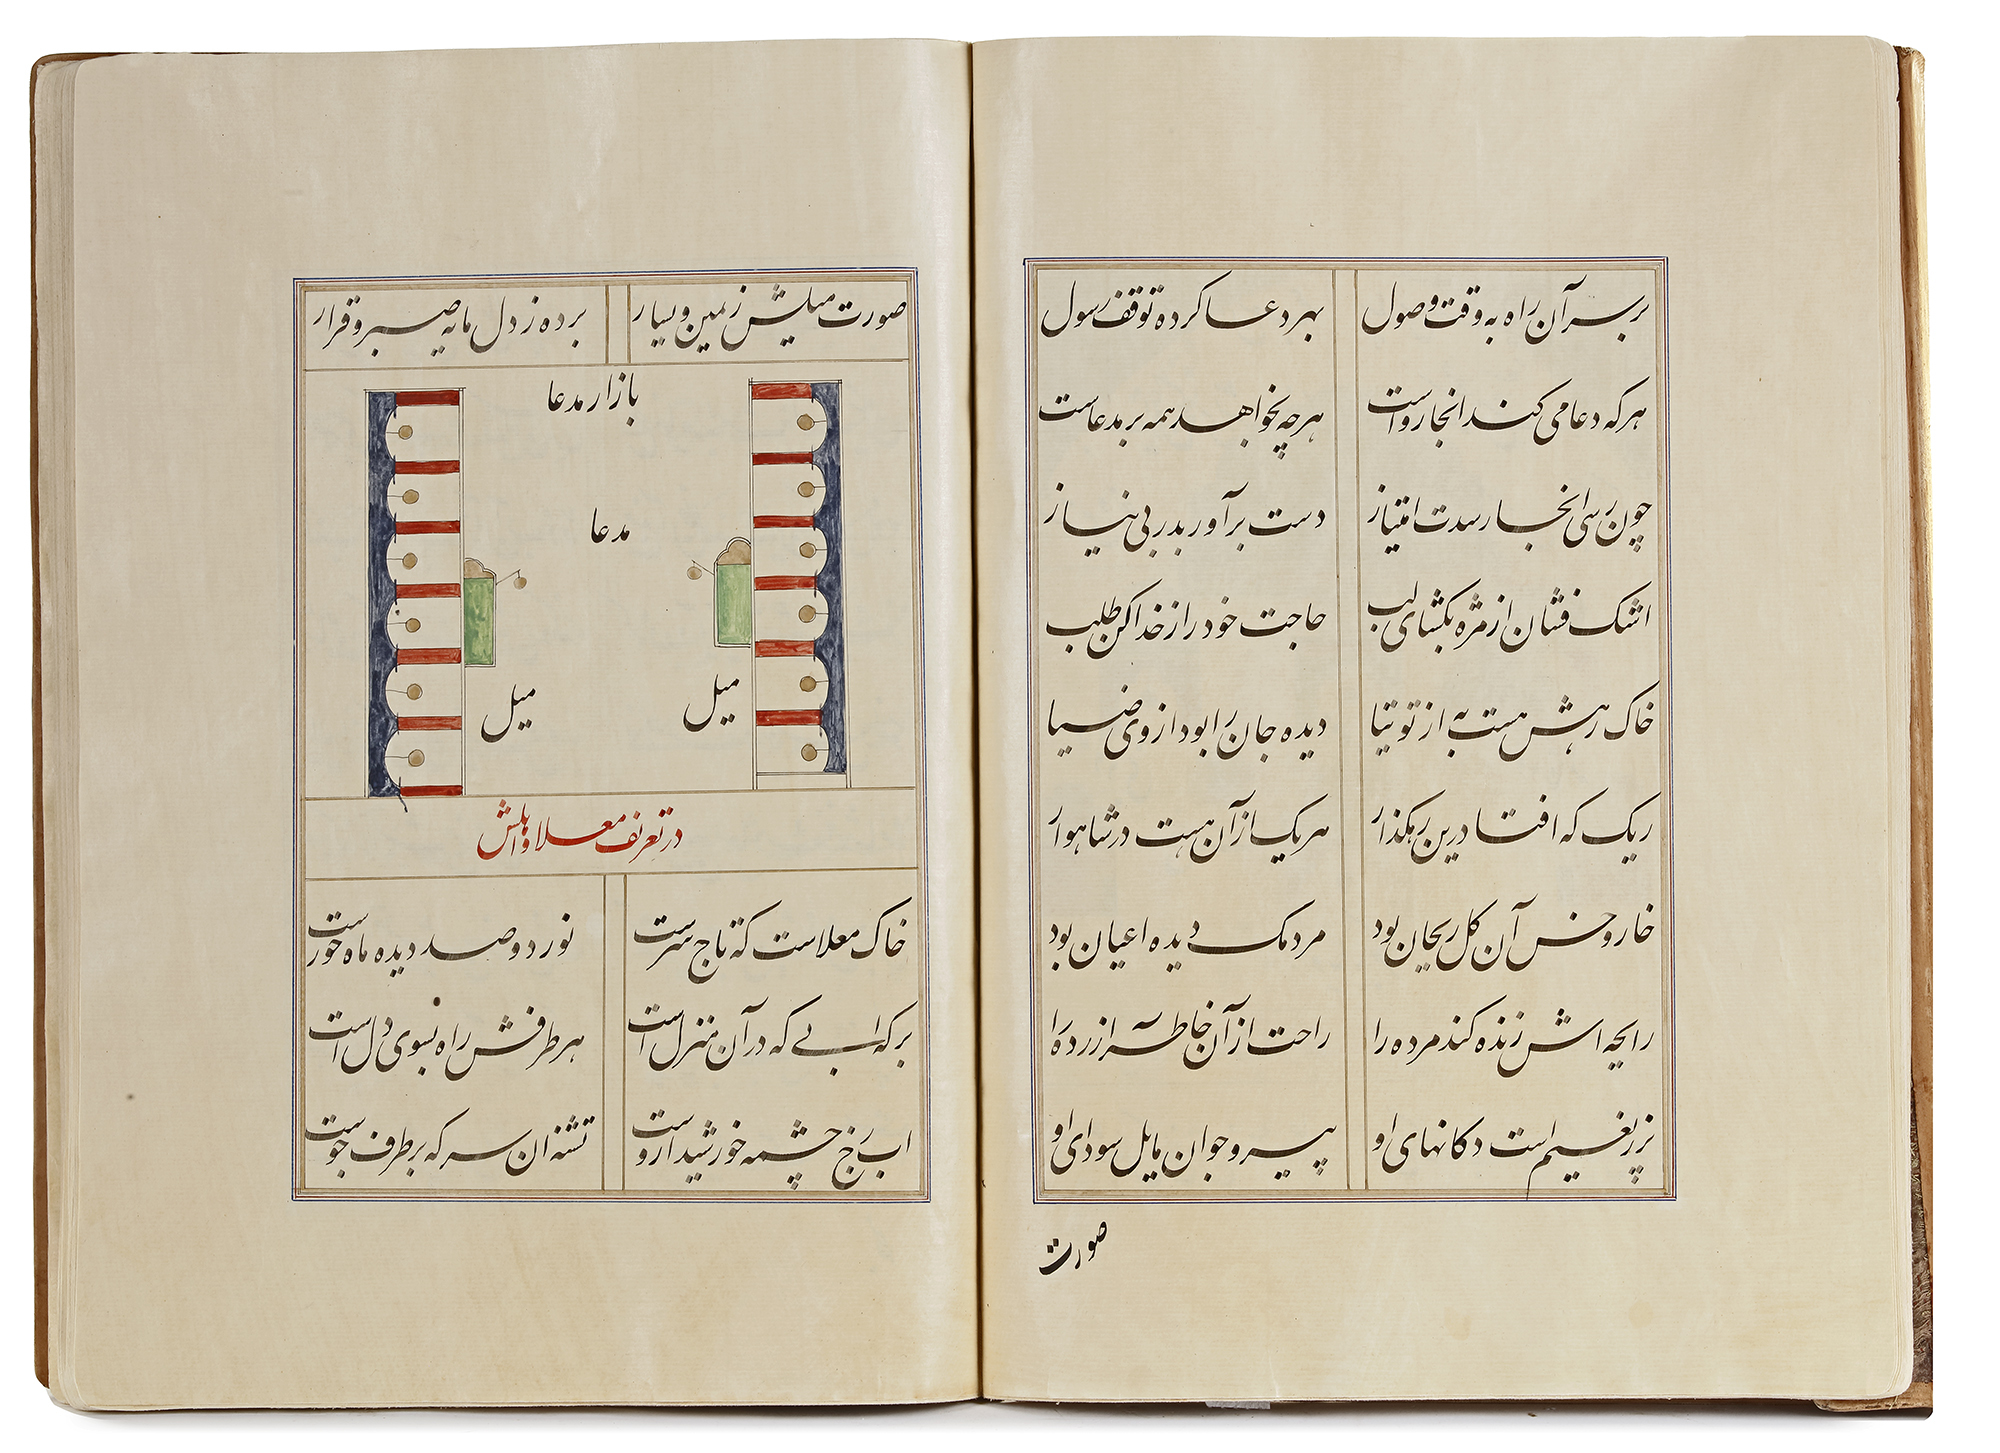 بر سر آن راه به وقت وصول بهر دعا کرده توقف رسول
هر که دعا می کند انجا رواست هر چه بخواهد همه بر مدعاست
چون رسی انجا رسدت امتیاز دست برآور بدر بی نیاز
اشک فشان از مژه بکشای لب حاجت خود را ز خدا کن طلب
خاک رهش هست به از توتیا دیده جان را بود از وی ضیا
ریک که افتاد درین رهکذار هر یک از آن هست در شاهوار
خار و خس آن کل ریحان بود مردمک دیده اعیان بود
رایحه اش زنده کند مرده را راحت از آن خاطر آزرده را
پر ز نعیم است دکانهای او پیر و جوان مایل سودای او
صورت
صورت میلش ز یمین و یسار برده ز دل مایه صبر و قرار
بازار مدعا
مدعا
میل
میل
در تعریف معلا و اهلش
خاک معلاست که تاج سرست نور دو صد دیده ماه و خورست
برکه ابی که در آن منزل است هر طرفش راه بسوی دل است
اب رخ چشمه خورشید ازوست تشنه ان سر که بر طرف جوست